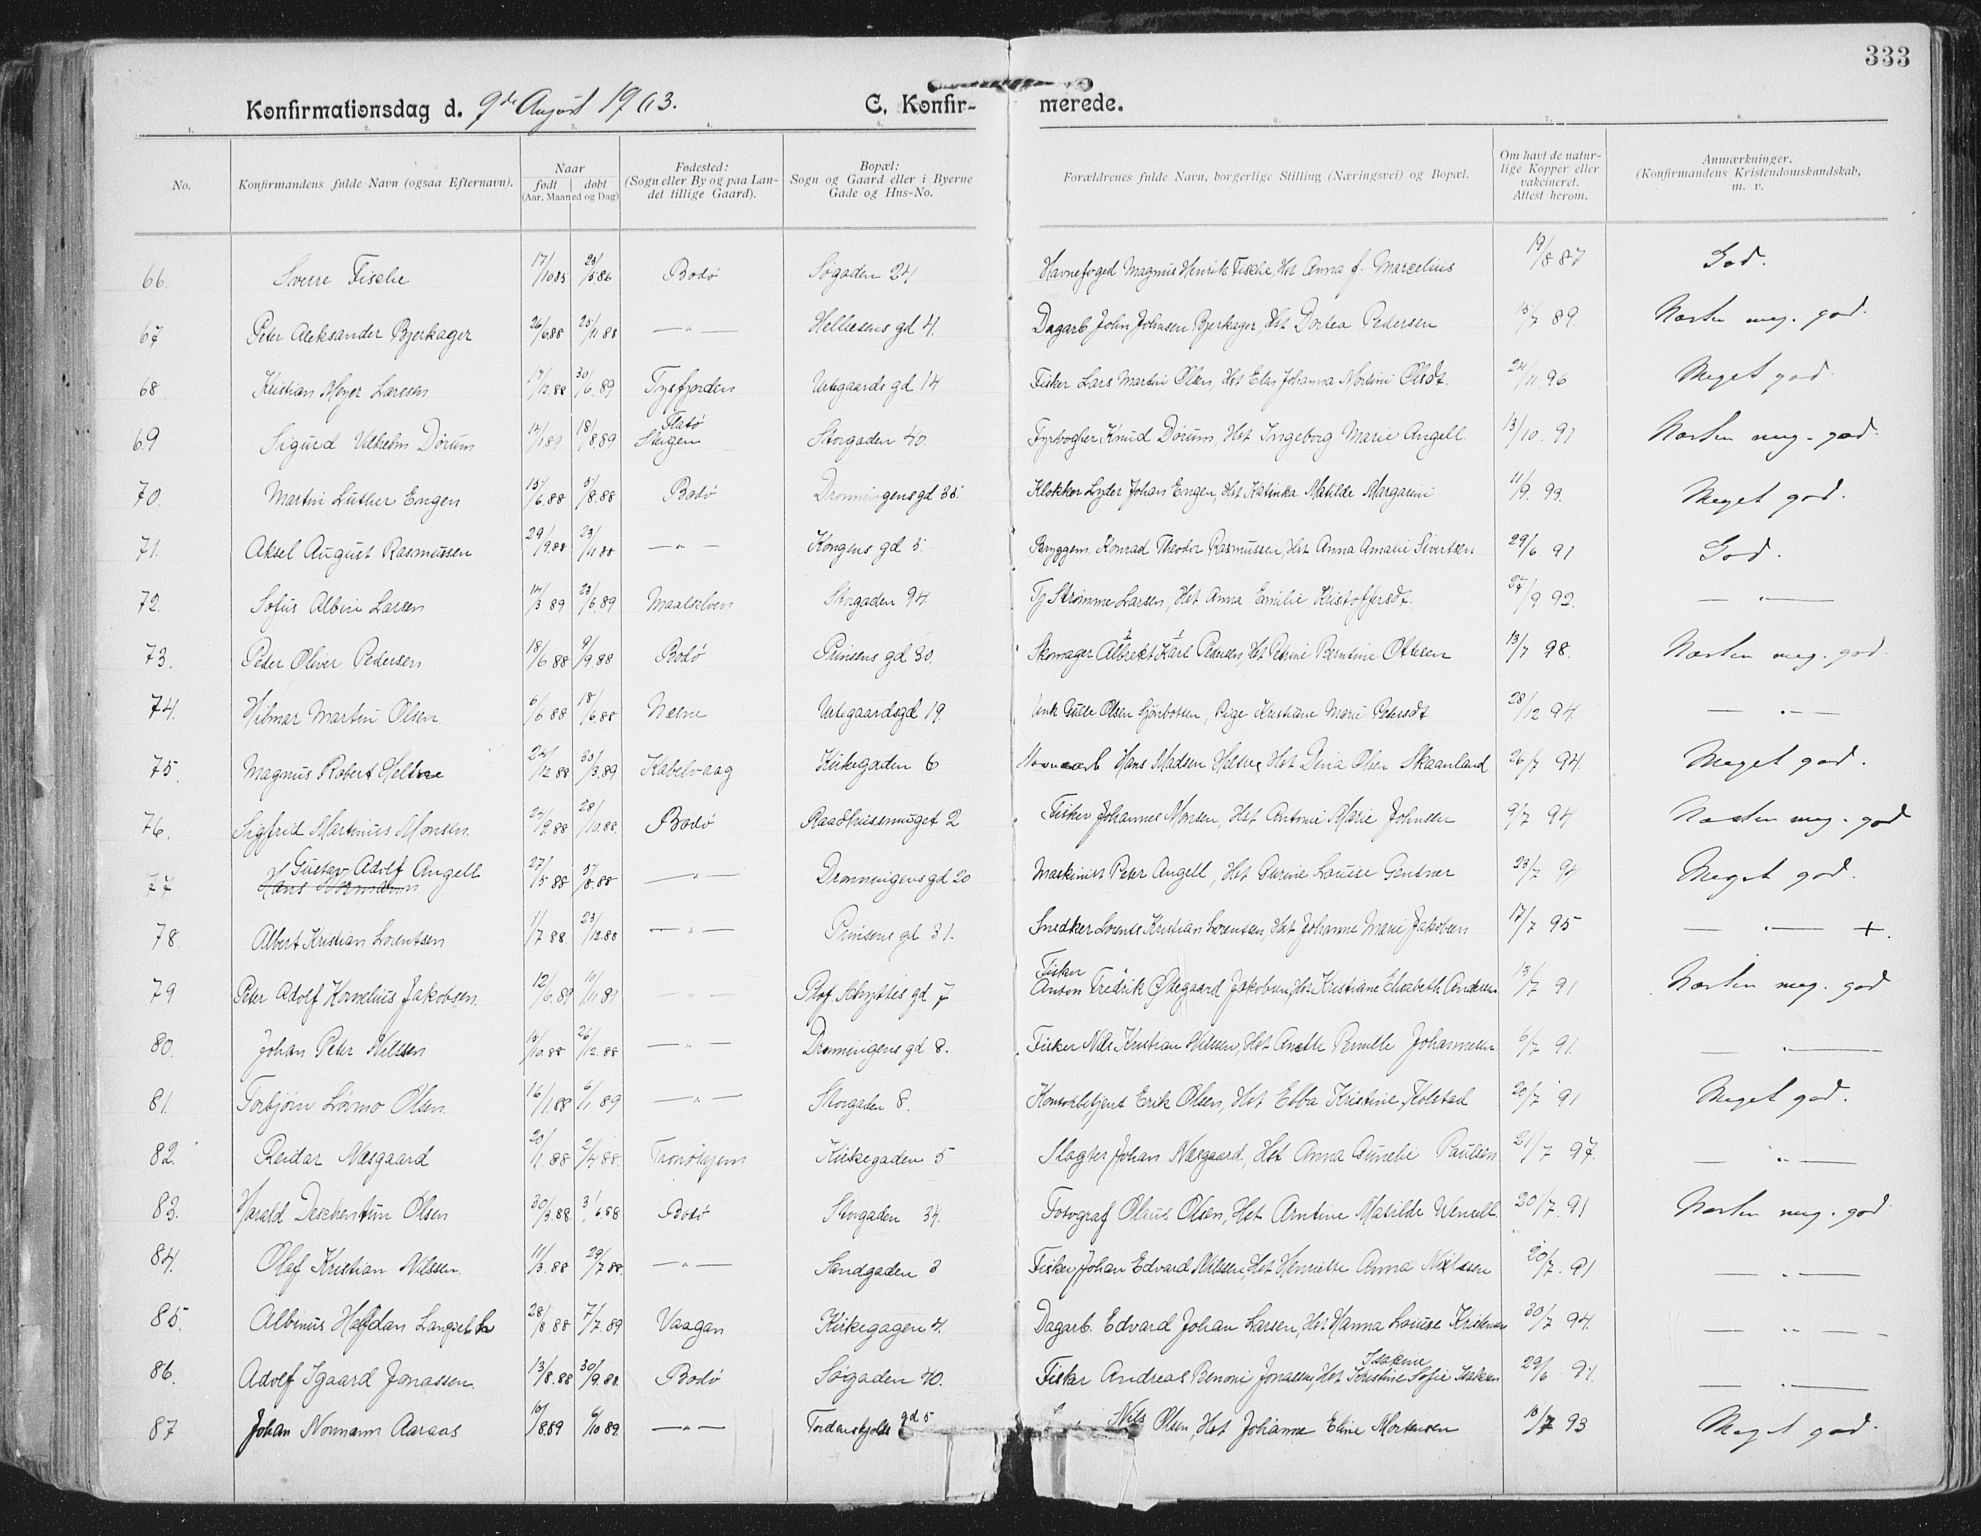 333
Konfirmationsdag d. 9de August 1903. C. Konfirmerede.
1. 2. 3. 4. 5. 6. 7. 8
No. Konfirmandens fulde Navn (ogsaa Efternavn). Naar født døbt (Aar, Maaned og Dag) Fødested: (Sogn eller By og paa Landet tillige Gaard). Bopæl: Sogn og Gaard eller i Byerne Gade og Hus-No. Forældrenes fulde Navn, borgerlige Stilling (Næringsvei) og Bopæl. Om havt de naturlige Kopper eller vakcineret. Attest herom. Anmærkninger. (Konfirmandens Kristendomskundskab, m. v.
66. Sverre Fische 17/10 85 23/5 86 Bodø Søgaden 24 Havnefoged Magnus Henrik Fische, Hst Anna f. Marcelius 19/8 87 God.
67 Peter Aleksander Bjerkager 26/6 88 25/11 88 — " — Hellesens gd 4. Dagarb. John Johnsen Bjerkager, Hst Dortea Pedersen 15/7 89. Næsten meg. god.
68. Kristian Meyer Larsen 17/12 88 30/6 89 Tysfjorden Urtegaards gd 14 Fisker Lars Martin Olsen, Hst Elen Johanna Nortine Olsdt. 24/11 96 Meget god.
69 Sigurd Vilhelm Dørum 14/1 89 18/8 89 Flatø Steigen Storgaden 40. Fyrvogter Knud Dørum, Hst Ingeborg Marie Angell 13/10. 91 Næsten meg. god.
70. Martin Luther Engen 15/6 88 5/8 88 Bodø Dronningensgd 35. Klokker Lyder Johan Engen, Hst Katinka Matilde Margarini 11/9. 93. Meget god.
71. Aksel August Rasmussen 29/9 88 23/11 88 — " — Kongens gd 5. Bryggem. Konrad Theodor Rasmussen, Hst Anna Amalie Sivertsen 29/6. 91 God.
72. Sofus Albin Larsen 14/3 89 23/6 89 Maalselven Storgaden 94. Tj Strømme Larsen, Hst Anna Emilie Kristoffersdt. 27/9 92. — " —
73. Peter Oliver Pedersen 18/6 88 9/9 88 Bodø Prinsens gd 30. Skomager Albrekt Karl Pedersen, Hst Petrine Berntine Ottesen 13/7 98. Næsten meg. god.
74. Hilmar Martin Olsen 6/6 88 18/6 88 Nesne Urtegaardsgd 19. Unk Gulle Olsen Sjonbotten, Pige Kristiane Marie Petersdt 28/12 94. — " —
75. Magnus Robert Heltne 24/12 88 30/3 89 Kabelvaag Kirkegaden 6 Hans Madsen Heltne, Hst Dina Olsen Skaanland 26/7 94. Meget god.
76. Sigfrid Martinus Monsen 24/9 88 28/10 88. Bodø Raadhussmuget 2 Fisker Johannes Monsen, Hst Antonie Marie Johnsen 9/7 94 Næsten meg. god
77 Gustav Adolf Angell 27/5 88 5/8 88 — " — Dronningens gd 20 Maskinist Peter Angell, Hst Gurine Louise Gentner 23/7 94 Meget god.
78. Albert Kristian Lorentsen 1/7 88. 23/12 88 — " — Prinsens gd 31. Snedker Lorents Kristian Lorentsen, Hst Johanne Marie Jakobsen 17/7 95 — " — +.
79 Peter Adolf Kornelius Jakobsen 12/6 89 10/11 89 — " — Prof. Schyttes gd 7 Fisker Anton Fredrik Ødegaard Jakobsen, Hst Kristiane Elisabeth Andersen 13/7 91 Næsten meg. god
80. Johan Peter Nilsen 15/10 88 26/12 88 — " — Dronningens gd 8. Fisker Nils Kristian Nilssen, Hst Anette Pernille Johannesen 6/7 91. — " —
81. Torbjørn Lørmo Olsen 16/11 88 6/1 89 — " — Storgaden 8. Kontorbetjent Erik Olsen, Hst Ebba Kristine Kolstad 20/7 91 Meget god.
82. Reidar Næsgaard 20/1 88 2/4 88. Trondhjem Kirkegaden 5 Slagter Johan Næsgaard, Hst Anna Gunelie Paulsen 21/7 97. — " —
83. Harald Deschentun Olsen 30/3 88. 3/6 88 Bodø Storgaden 34. Fotograf Olaus Olsen, Hst Arntine Matilde Wensell 20/7. 91 Næsten meg. god
84. Olaf Kristian Nilssen 11/3. 88 29/7 88. — " — Sandgaden 3 Fisker Johan Edvard Nilssen, Hst Henriette Anna Nilssen 20/7. 91 — " —
85. Albinus Halfdan Langseth 28/8 88 7/7. 89 Vaagan Kirkegagen 4. Dagarb. Edvard Johan Larsen, Hst Hanna Louise Kristensen 30/7 94. — " —
86. Adolf Igaard Jonassen 13/8. 88 30/9. 88. Bodø Søgaden 40. Fisker Andreas Benoni Jonassen, Hst Isakine Kristine Sofie Isaksen 29/6 91. — " —
87 Johan Normann Aaraas 10/8 89 6/10 89. — " — Tordenskjolds gd 5 " Nils Olsen, Hst Johanne Eline Mortensen 10/7 93 Meget god.